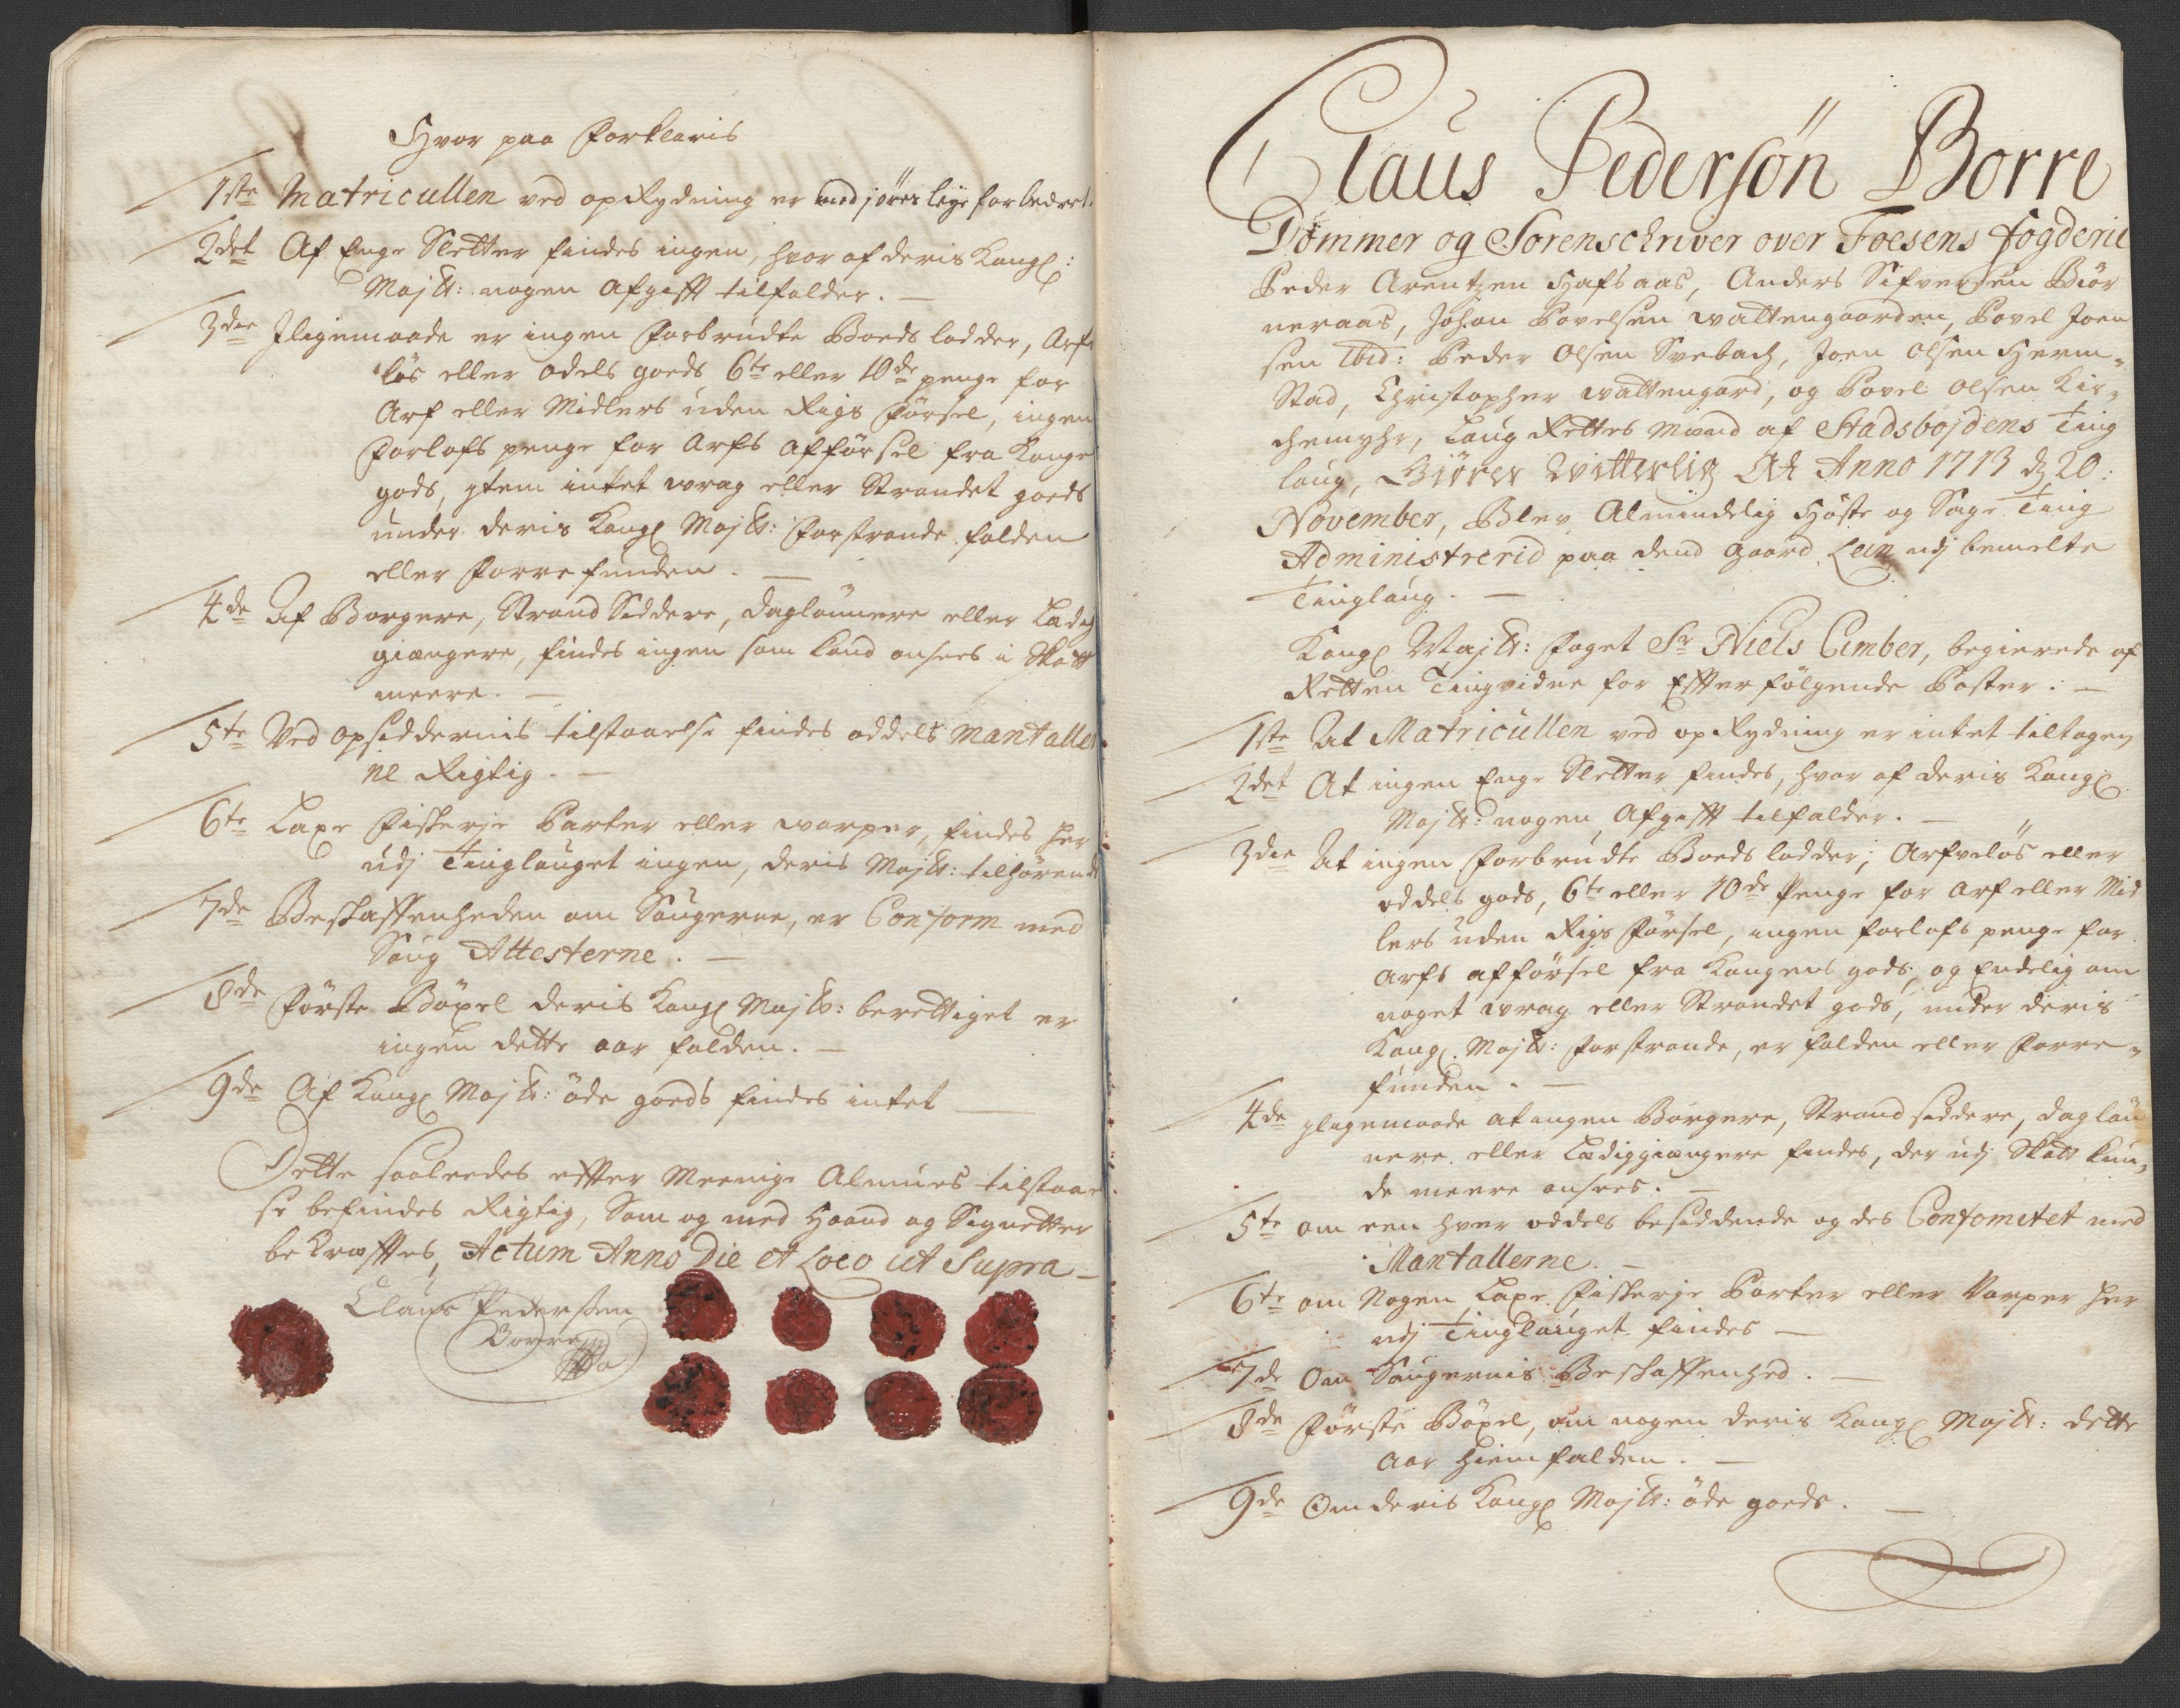 Hvor paa Forklaris
1ste Matricullen ved opRydning er med jores leye forbedret.
2det Af Enge Sletter findes ingen, hvor af deris Kongl:
Majtt: nogen Afgifft tilfalder. —
3die Iligemaade er ingen Forbrudte Boeds lodder, Arfve
løs eller odels goeds, 6te eller 10de penge for
Arf eller Midlers uden Rigs Førsel, ingen
Forlofs penge for Arfs Afførsel fra Konge
gods, ytem intet wrag eller Strandet goeds
under deris Kongl Majtt: Forstrande falden
eller Forrefunden. —
4de Af Borgere, Strand Siddere, Daglønnere eller Ledig
giængere, findes ingen som kand ansees i Skatt
meere. —
5te Ved opsiddernis tilstaaelse findes oddels Mantaller
ne Rigtig. —
6te Laxe Fiskerje Parter eller warper, findes her
udj Tinglauget ingen, deris Majtt: tilhørende
7de Beskaffenheden om Saugerne, er Conform med
Saug Attesterne. —
8de Første Bøxel deris Kongl Majtt: berettiget er
ingen dette aar falden. —
9de Af Kongl Majtt: øde goeds findes intet —
Dette saaleedes effter Meenige Almues tilstaael
se befindes Rigtig, Som og med Haand og Signetter
bekræfftes, Actum Anno Die et Loco ut Supra —
Claus Pedersen
Borre
Claus Pedersøn Borre
Dommer og Sorenschriver over Foesens Fogderie
Peder Arentzen Hafsaas, Anders Sifversen Biør
neraas, Johan Povelsen Wattengaarden, Povel Joen
sen Ibid: Peder Olsen Svebach, Joen Olsen Herm-
Stad, Christopher Wattengard, og Povel Olsen Kir-
chemyhr, Laug Rettes Mænd af Stadsbøjdens Ting
laug, Giører Witterlig At Anno 1713 d 20:
November, Blev Almindelig Høste og Sage Ting
Administrerid paa dend Gaard Lein udj bemelte
Tinglaug. —
Kongl Majtt: Foget Sr Niels Cimber, begierede af
Retten Tingvidne for Effterfølgende Poster: —
1ste At Matricullen ved opRydning er intet tiltagen
2det At ingen Enge Sletter findes, hvor af deris Kongl
Majtt: nogen Afgifft tilfalder. —
3die At ingen Forbrudte Boeds lodder, Arfveløs eller
oddels gods, 6te eller 10de Penge for Arf eller Mid
lers uden Rigs Førsel, ingen forlofs penge for
Arfs afførsel fra Kongens gods, og Endelig om
noget wrag eller Strandet gods, under deris
Kongl. Majtt: Forstrande, er falden eller Forre-
funden. —
4de Iligemaade at ingen Borgere, Strand siddere, Dagløn
nere eller Lediggiængere findes, der udj Skatt kun-
de meere ansees. —
5te om een hver oddels besiddende og des Confomitet med
Mantallerne. —
6te om Nogen Laxe Fiskerje Parter eller Varper her
udj Tinglauget findes —
7de Om Saugernis Beskaffenhed. —
8de Første Bøxel, om nogen deris Kongl Majtt: dette
Aar hiemfalden. —
9de Om deris Kongl Majtt: øde goeds. —